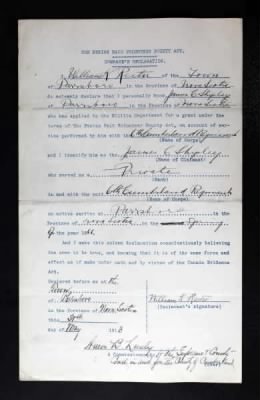 THE FENIAN RAID VOLUNTEER BOUNTY ACT.
COMRADE'S DECLARATION.
I, William R Rector of the Town
of Parrsboro in the Province of Nova Scotia
do solemnly declare that I personally know James E Shipley
of Parrsboro in the Province of Nova Scotia
who has applied to the Militia Department for a grant under the
terms of the Fenian Raid Volunteer Bounty Act, on account of service
performed by him with the Cumberland Regiment
(Name of Corps)
and I identify him as the James E Shipley
(Name of Claimant)
who served as a Private
(Rank)
in and with the said Cumberland Regiment
(Name of Corps)
on active service at Parrsboro in the
Province of Nova Scotia in the Spring
of the year 1866.
And I make this solemn Declaration conscientiously believing
the same to be true, and knowing that it is of the same force and
effect as if made under oath and by virtue of the Canada Evidence
Act.
Declared before me at the
Town
of Parrsboro
in the Province of Nova Scotia
this
day of
May 1913
William R Rector
(Declarant's signature)
A Commissioner of the Supreme Court
in and for the County of Cumberland